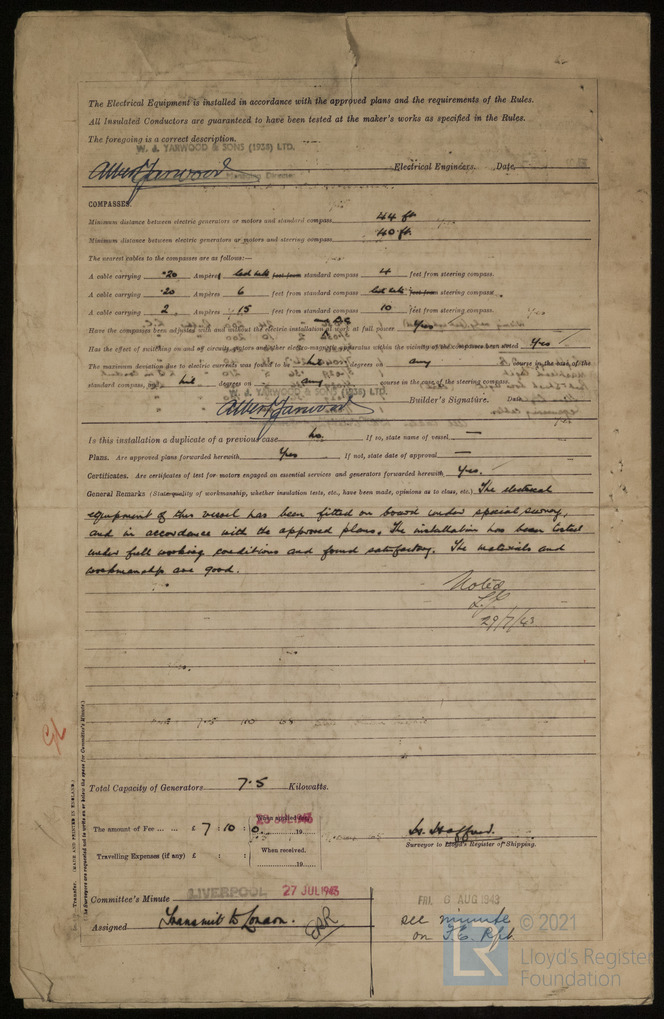 The Electrical Equipment is installed in accordance with the approved plans and the requirements of the Rules.
All Insulated Conductors are guaranteed to have been tested at the maker's works as specified in the Rules.
The foregoing is a correct description.
W. J. YARWOOD & SONS (1938) LTD.
Albert Yarwood Electrical Engineers. Date
COMPASSES.
Minimum distance between electric generators or motors and standard compass 44 ft.
Minimum distance between electric generators or motors and steering compass 40 ft.
The nearest cables to the compasses are as follows:—
A cable carrying .20 Ampères led into feet from standard compass 4 feet from steering compass.
A cable carrying .20 Ampères 6 feet from standard compass led into feet from steering compass.
A cable carrying 2 Ampères 15 feet from standard compass 10 feet from steering compass.
Have the compasses been adjusted with and without the electric installation at work at full power Yes
Has the effect of switching on and off circuits, motors and other electro-magnetic apparatus within the vicinity of the compasses been noted Yes
The maximum deviation due to electric currents was found to be nil degrees on any course in the case of the
standard compass, and nil degrees on any course in the case of the steering compass.
W. J. YARWOOD & SONS (1938) LTD.
Albert Yarwood Builder's Signature. Date
Is this installation a duplicate of a previous case no. If so, state name of vessel —
Plans. Are approved plans forwarded herewith Yes If not, state date of approval —
Certificates. Are certificates of test for motors engaged on essential services and generators forwarded herewith Yes.
General Remarks (State quality of workmanship, whether insulation tests, etc., have been made, opinions as to class, etc.) The electrical
equipment of this vessel has been fitted on board under special survey,
and in accordance with the approved plans. The installation has been tested
under full working conditions and found satisfactory. The materials and
workmanship are good.
Noted
29/7/43
Total Capacity of Generators 7.5 Kilowatts.
The amount of Fee ... ... £ 7 : 10 : 0. When applied for 19
Surveyor to Lloyd's Register of Shipping.
Travelling Expenses (if any) £ : : When received. 19
Committee's Minute LIVERPOOL 27 JUL 1943
FRI. 6 AUG 1943
Assigned Transmit to London.
see minute
on F.E. Rpt.
© 2021
LR
Lloyd's Register
Foundation